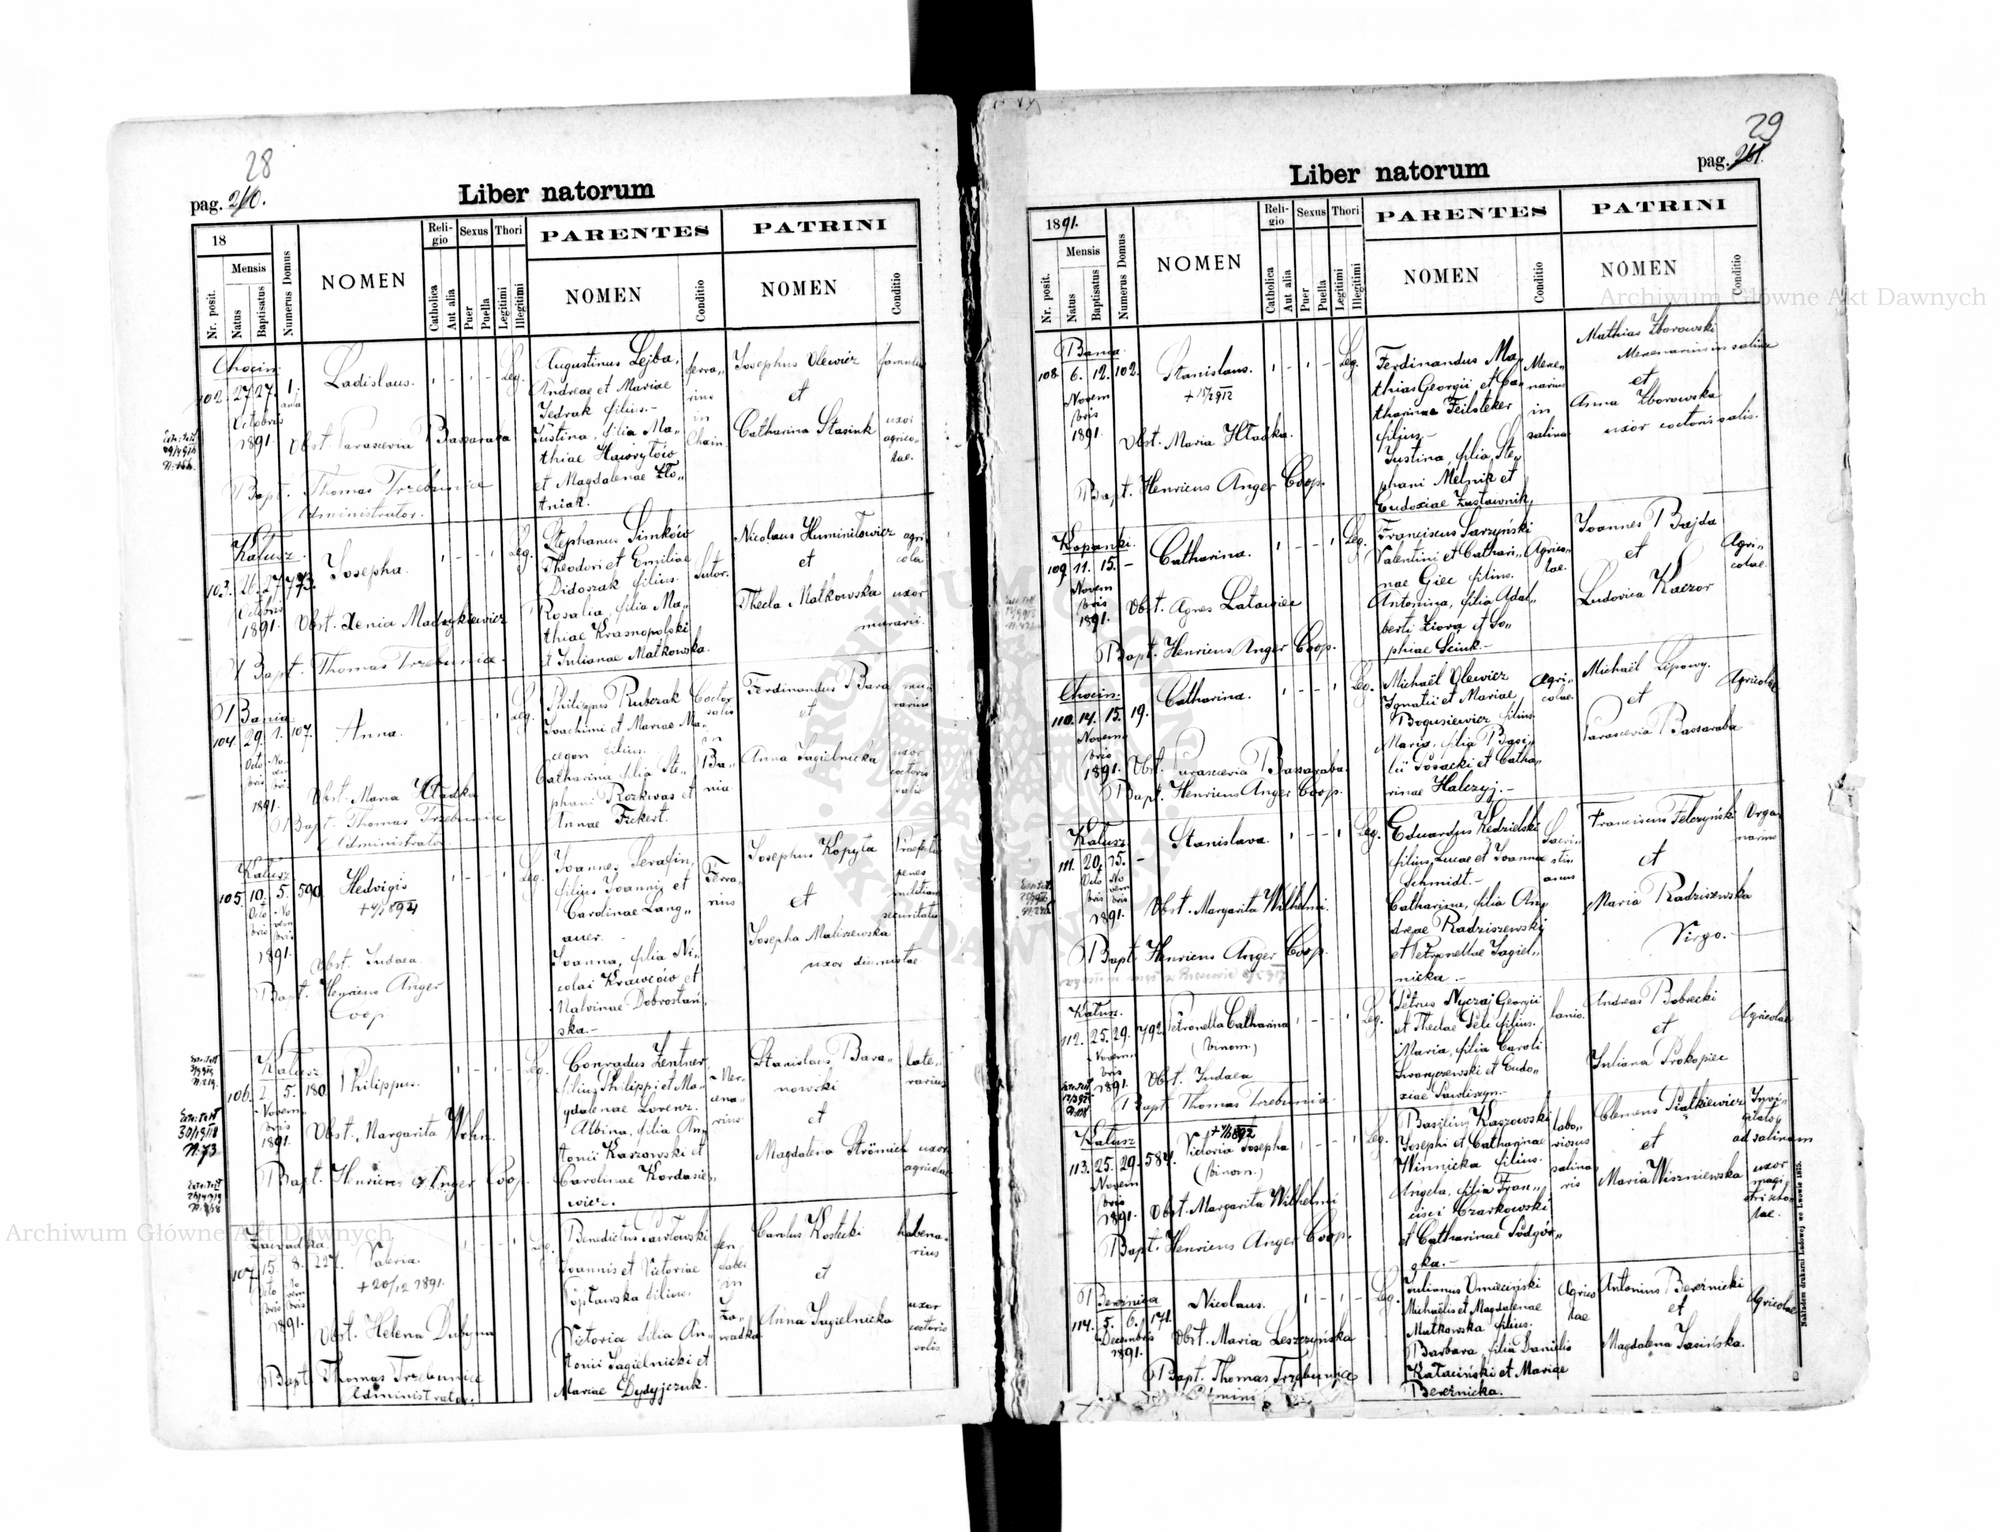 28
pag. 210.
Liber natorum
18
Nr. posit.
Mensis
Natus
Baptisatus
Numerus Domus
NOMEN
Religio
Catholica
Aut alia
Sexus
Puer
Puella
Thori
Legitimi
Illegitimi
PARENTES
NOMEN
Conditio
PATRINI
NOMEN
Conditio
Chocin
102. 27 27 1.
Octobris
1891.
Ladislaus.
Leg.
Obst. Parascevia Bassaraba
Bapt. Thomas Trzebunia
Administrator.
Augustinus Lejba,
Andreae et Mariae
Jedrak filius.-
Justina, filia Ma-
thiae Hawrylów
et Magdalenae Zło-
tniak.
ferra-
rius
in
Chocin.
Josephus Olewicz
et
Catharina Stasink
famulus
uxor
agrico-
lae.
Kałusz.
103. 21. 27 773.
Octobris
1891.
Josepha.
Leg.
Obst. Xenia Madrykiewicz
Bapt. Thomas Trzebunia.
Stephanus Simków
Theodori et Emiliae
Didoszak filius.
Rosalia, filia Ma-
thiae Krasnopolski
et Julianae Małkowska.
Sutor.
Nicolaus Huminilowicz
et
Thecla Małkowska
agri
cola
uxor
murarii.
Bania
104. 29. 1. 107.
Octo
bris
No
vem
bris
1891.
Anna.
Leg.
Obst. Maria Hładka
Bapt. Thomas Trzebunia
Administrator.
Philippus Rubczak
Joachimi et Mariae Ma-
cegon filius.
Catharina filia Ste-
phani Rozkwas et
Annae Fickert.
Coctor
salis
in
Ba-
nia
Ferdinandus Bara
et
Anna Jagielnicka
mu-
rarius
uxor
coctoris
salis
Kałusz
105. 10. 5. 590.
Octo
bris
No
vem
bris
1891.
Hedvigis
Leg.
Obst. Judaea.
Bapt. Henricus Anger
Coop.
Joannes Serafin,
filius Joannis et
Carolinae Lang-
auer.
Joanna, filia Ni-
colai Krawców et
Malvinae Dobrostań-
ska.-
Ferra-
rius
Josephus Kopyta
et
Josepha Maliszewska
uxor diurnistae
Praefectus
penes
militiam
securitatis
Kałusz
106. 2. 5. 180.
Novem
bris
1891.
Philippus.
Leg.
Obst. Margarita Wohn.
Bapt. Henricus Anger Coop.
Conradus Zentner
filius Philippi et Ma-
gdalenae Lorenz.
Albina, filia An-
tonii Kaszowski et
Carolinae Kordasie-
wicz.
Mer-
cena-
rius
Stanislaus Bara-
nowski
et
Magdalena Strömich
late-
rarius
uxor
agricolae
Zawadka
107. 15. 8. 227.
Octo
bris
No
vem
bris
1891.
Valeria.
+ 20/12 1891.
Leg.
Obst. Helena Dubyna
Bapt. Thomas Trzebunia
Administrator.
Benedictus Pawłowski
Joannis et Victoriae
Popławska filius.
Victoria filia An-
tonii Jagielnicki et
Mariae Dydyjczuk.
faber
in
Za-
wadka
Carolus Kostecki
et
Anna Jagielnicka
habena-
rius
uxor
coctoris
salis
29
pag. 211.
Liber natorum
1891.
Nr. posit.
Mensis
Natus
Baptisatus
Numerus Domus
NOMEN
Religio
Catholica
Aut alia
Sexus
Puer
Puella
Thori
Legitimi
Illegitimi
PARENTES
NOMEN
Conditio
PATRINI
NOMEN
Conditio
Bania
108. 6. 12. 102.
Novem
bris
1891.
Stanislaus.
Leg.
Obst. Maria Hładka.
Bapt. Henricus Anger Coop.
Ferdinandus Ma-
thias Georgii et Ca-
tharinae Feilsteker
filius.-
Justina, filia Ste-
phani Melnik et
Eudoxiae Zustawnik
Merce-
narius
in
salina
Mathias Zborowski
Mercenarius in salina
et
Anna Zborowska
uxor coctoris salis.
Kopanki.
109. 11. 15. -
Novem
bris
1891.
Catharina.
Leg.
Obst. Agnes Latawiec
Bapt. Henricus Anger Coop.
Franciscus Sarzyński
Valentini et Cathari-
nae Giec filius.
Antonina, filia Adal-
berti Ziora et So-
phiae Scink.-
Agrico-
lae.
Joannes Bajda
et
Ludovica Kaczor
Agri-
colae.
Chocin.
110. 14. 15. 19.
Novem
bris
1891.
Catharina.
Leg.
Obst. Parascevia Bassaraba.
Bapt. Henricus Anger Coop.
Michaël Olewicz
Ignatii et Mariae
Bogusiewicz filius.
Maria, filia Basi-
lii Posacki et Catha-
rinae Halczyj.-
Agri-
colae.
Michaël Lipowy.
et
Parascevia Bassaraba
Agricolae
Kałusz
111. 20. 15. -
Octo
bris
No
vem
bris
1891.
Stanislava.
Leg.
Obst. Margarita Wilhelmi.
Bapt. Henricus Anger Coop.
Eduardus Kędzielski
filius Lucae et Joannae
Schmidt.-
Catharina, filia An-
dreae Radziszewski
et Petronellae Jagiel-
nicka.-
Sacri-
stia
anus
Franciscus Felczyński
et
Maria Radziszewska
Virgo.-
Orga
narius
Kałusz.
112. 25. 29. 792.
Novem
bris
1891.
Petronella Catharina
(binom.)
Leg.
Obst. Judaea
Bapt. Thomas Trzebunia.
Petrus Nyczaj Georgii
et Theclae Pełe filius.
Maria, filia Caroli
Swaryczewski et Eudo-
xiae Pawliszyn.-
lanio.
Andreas Bobrecki
et
Juliana Prokopiec
Agricolae
Kałusz
113. 25. 29. 584.
Novem
bris
1891.
Victoria Josepha
(binom.)
Leg.
Obst. Margarita Wilhelmi
Bapt. Henricus Anger Coop.
Basilius Kaszowski
Josephi et Catharinae
Winnicka filius.
Angela, filia Fran-
cisci Czarkowski
et Catharinae Podgór-
ska.-
labo-
riosus
salina
ris
Clemens Piątkiewicz
et
Maria Wiszniewska
Invi-
gilator
ad salinam
uxor
magi-
stri scho-
lae.
Bereźnica
114. 5. 6. 171.
Decembris
1891.
Nicolaus.
Leg.
Obst. Maria Leszczyńska
Bapt. Thomas Trzebunia
Julianus Omieciński
Michaëlis et Magdalenae
Małkowska filius.
Barbara, filia Danielis
Kataciński et Mariae
Bereźnicka.
Agrico
lae
Antonius Bereźnicki
et
Magdalena Jasińska.
Agricolae
Nakładem drukarni Ludowej we Lwowie 1875.
Archiwum Główne Akt Dawnych
Archiwum Główne Akt Dawnych